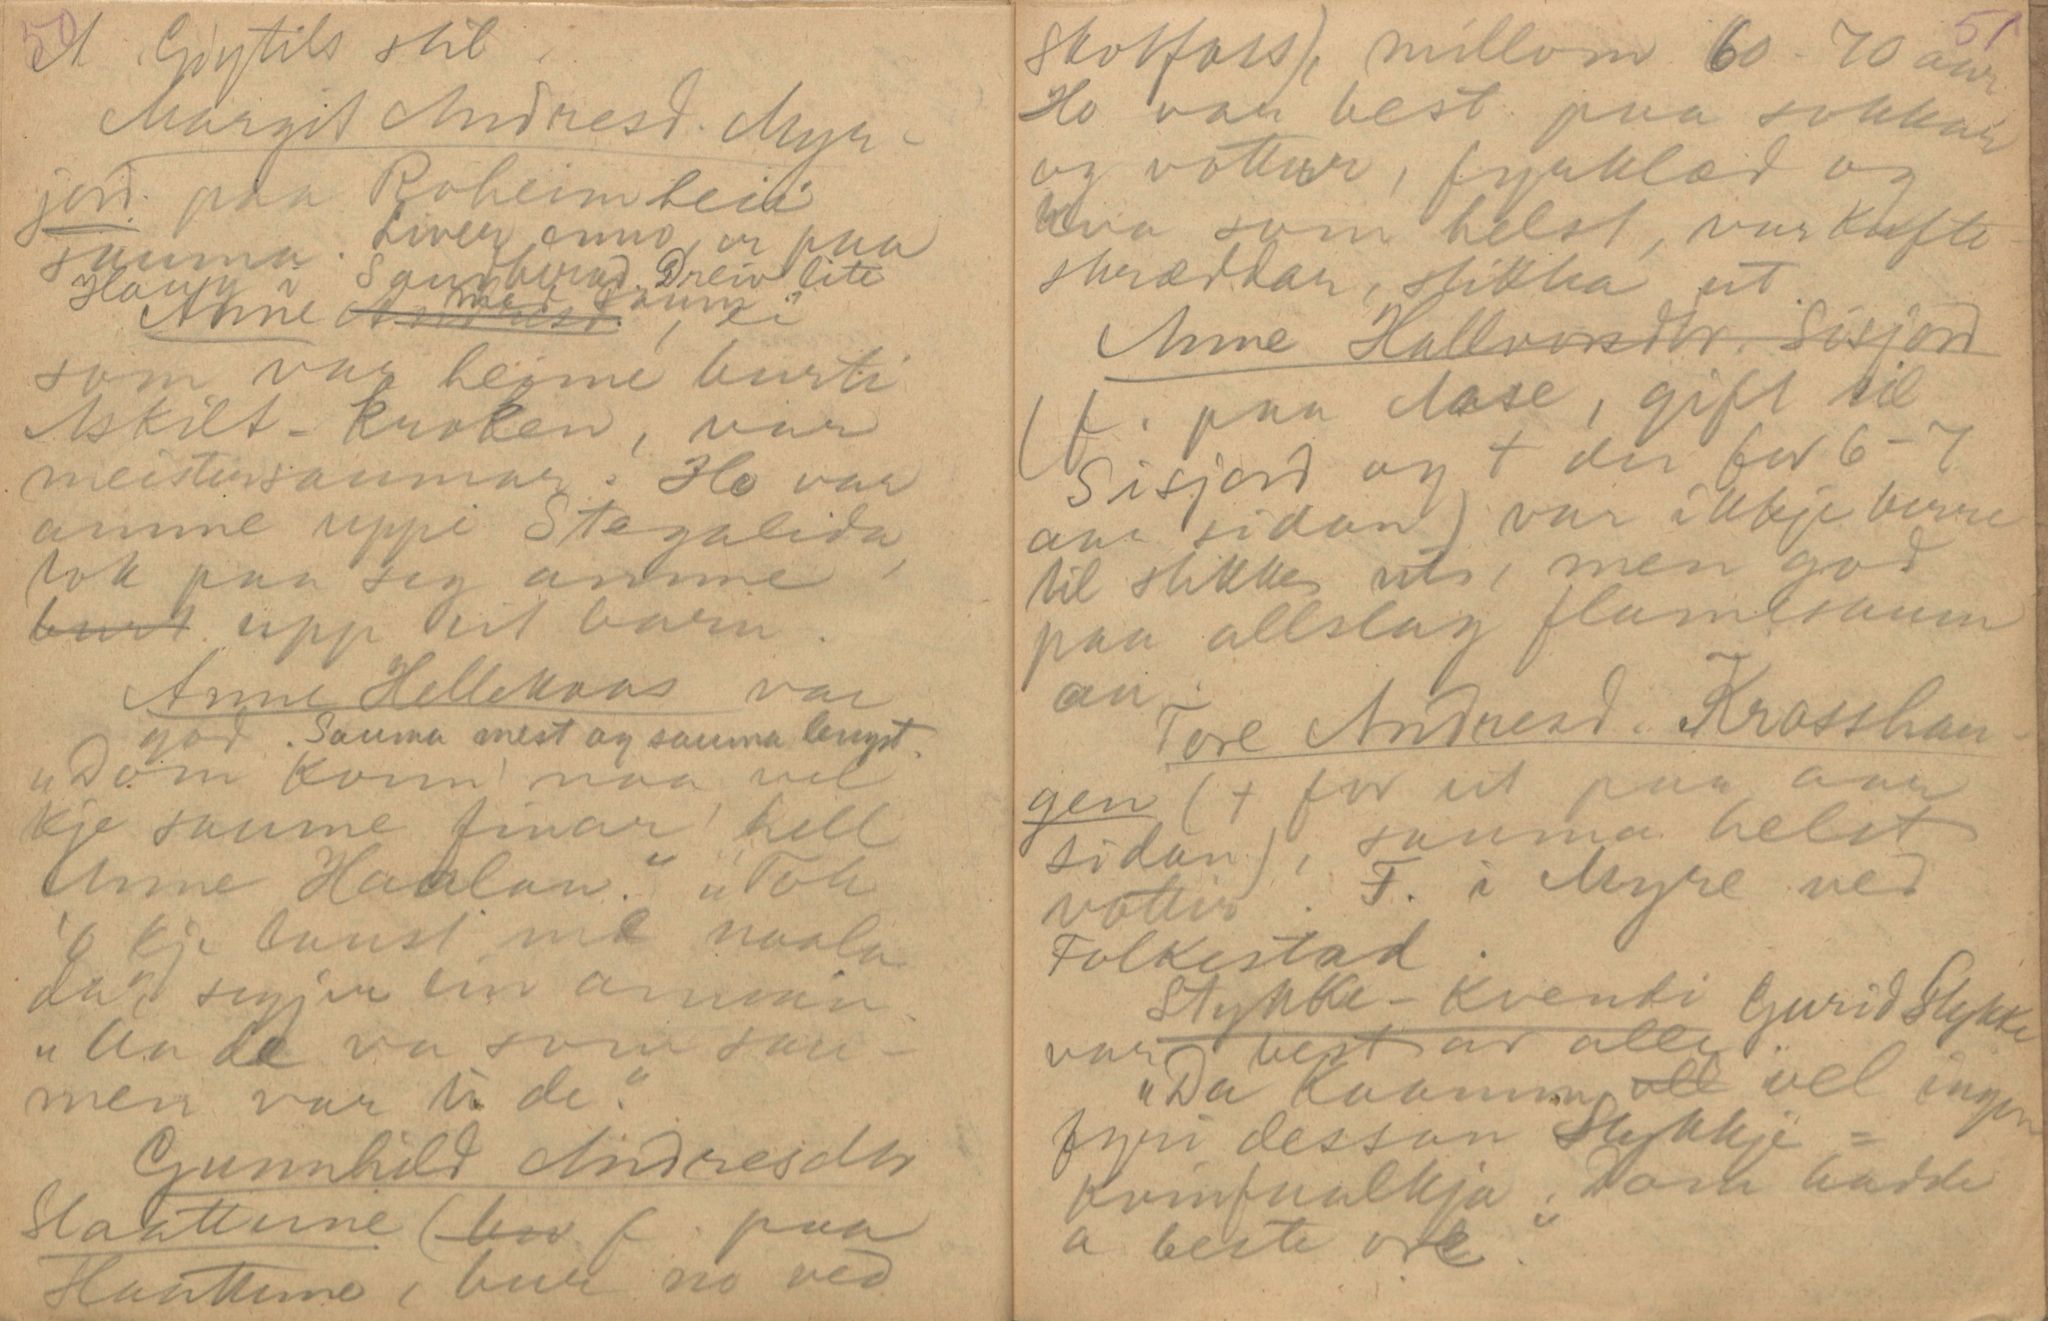 50
A Gøytils stil.
Margit Andresd. Myr-
jord paa Roheimheii
sauma. Liver enno, er paa
Haug i Sauherad. Dreiv lite
med saum
Anne Andresd., ei
som var heime burti
Askilt-kroken, var
meistersaumar. Ho var
amme uppi Stegalida,
tok paa seg amme
burt upp eit barn.
Anne Hellekaas var
god. Sauma mest og sauma lengst.
"Dom konn' naa vel
kje saume finar' hell
Anne Haalan." "Tok
kje laust me naala
da", segjer ein annan.
"Aa de va som sau-
men var ti de."
Gunnhild Andresdtr
Slaattune (bur f. paa
Slaattune, bur no ved
51
Skotfoss), millom 60-70 aar
Ho var best paa sokkar
og vottur, fyrklæd og
kva som helst, var kofte-
skreddar, stikka ut.
Anne Hallvorsdtr. Sisjord
(f. paa Aase, gift til
Sisjord og + der for 6-7
aar sidan) var ikkje berre
til stikke ut, men god
paa allslag flamesaum
au.
Tore Andresd. Krosshau-
gen (+ for eit par aar
sidan), sauma helst
vottir. F. i Myre ved
Folkestad.
Stykke-kvendi Gurid Stykke
var best av alle.
"Da kaamm vel vel ingen
fyri dessan Stykkje=
kvinfualkja. Dom hadde
a beste ore".